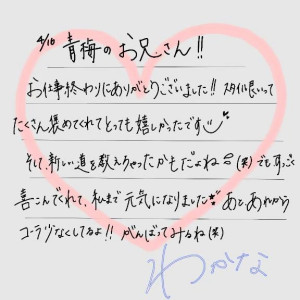 4/10 青梅のお兄さん!!
お仕事終わりにありがとうございました!! スタイル良いって
たくさん褒めてくれてとっても嬉しかったです
そして、新しい道を教えちゃったかもだよね(笑) でもすっごく
喜こんでくれて、私まで元気になりました あと、あれから
コーラ少なくしてるよ!! がんばってみるね(笑)
わかな